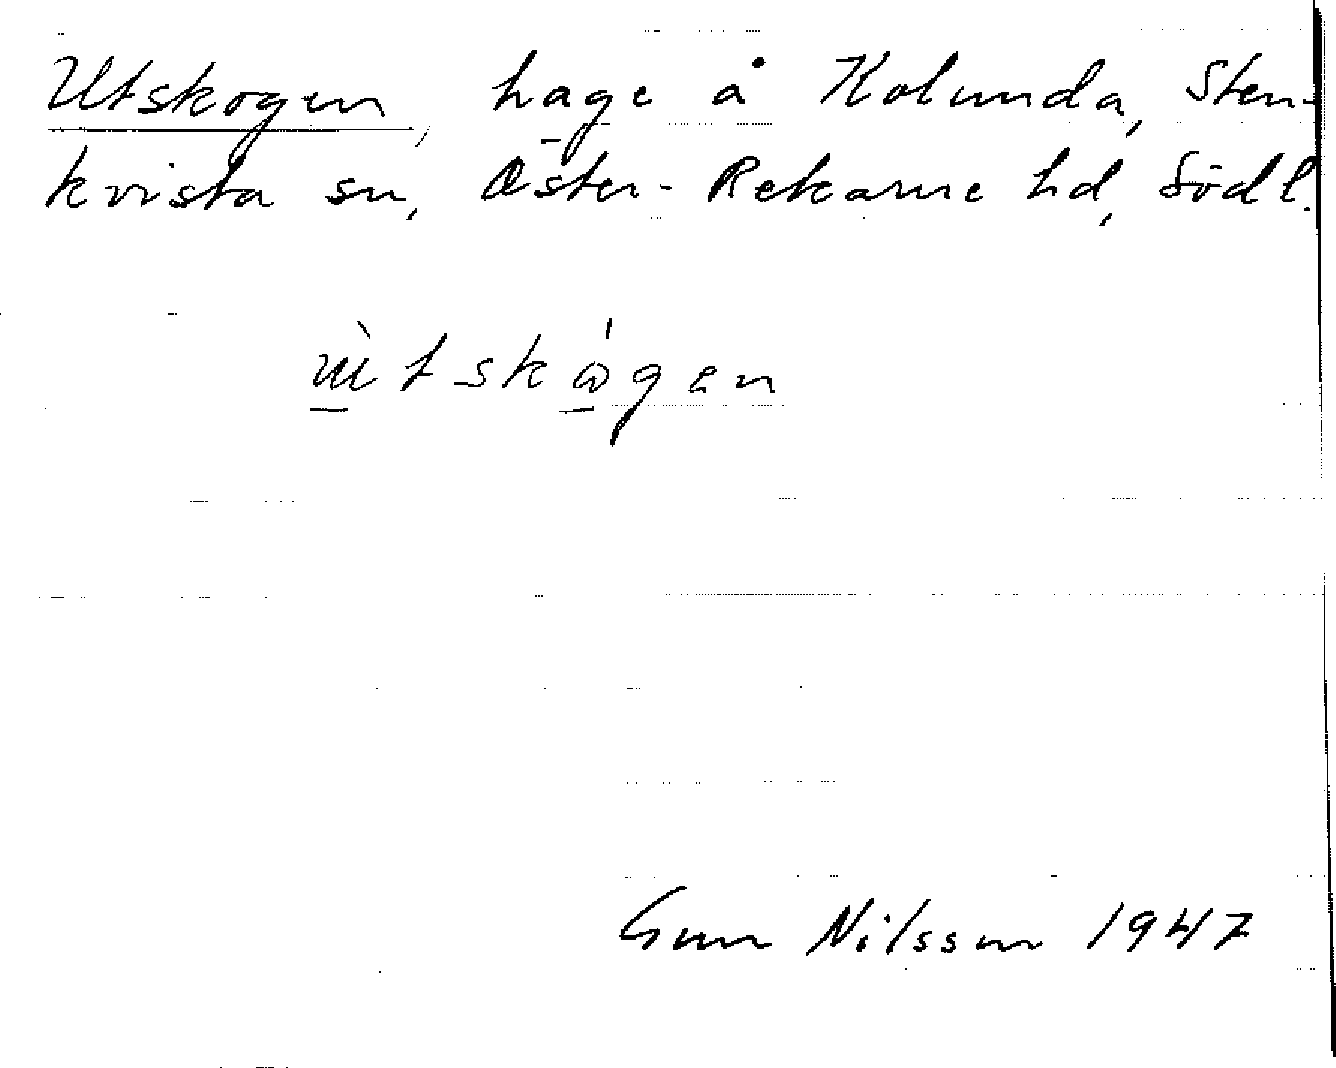 Utskogen, hage å Kolunda, Sten-
kvista sn, Öster-Rekarne hd, Södl.
ùtskógen
Gun Nilsson 1947